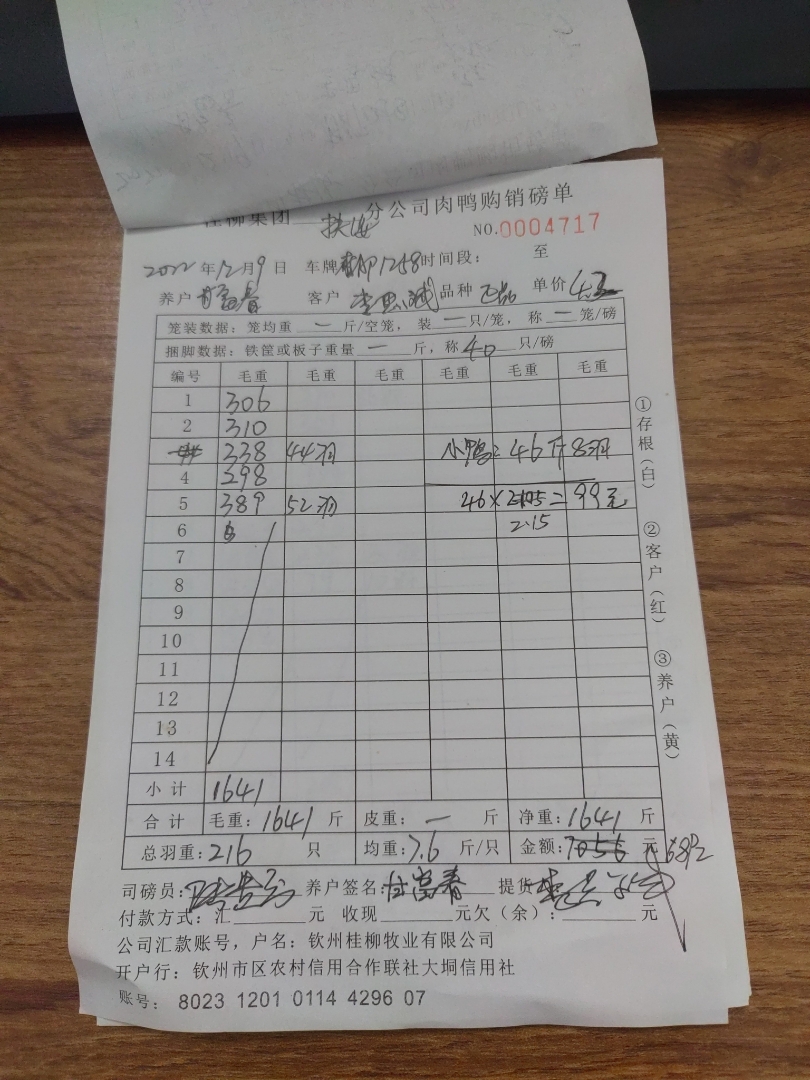 桂柳集团 扶绥 分公司肉鸭购销磅单
NO.0004717
2022 年 12 月 9 日 车牌 桂柳1258 时间段： 至
养户 客户 李思诚 品种 单价 4.3
笼装数据：笼均重 一 斤/空笼，装 一 只/笼，称 一 笼/磅
捆脚数据：铁筐或板子重量 一 斤，称 40 只/磅
编号 毛重 毛重 毛重 毛重 毛重 毛重
1 306
2 310
338 44羽 小鸭：46斤 8羽
4 298
5 389 52羽 46× = 99元
6 2.15
7
8
9
10
11
12
13
14
小计 1641
合计 毛重：1641 斤 皮重：一 斤 净重：1641 斤
总羽重：216 只 均重：7.6 斤/只 金额：7056 元 6892
司磅员： 养户签名： 富春 提货
付款方式：汇 元 收现 元欠（余）： 元
公司汇款账号，户名：钦州桂柳牧业有限公司
开户行：钦州市区农村信用合作联社大垌信用社
账号： 8023 1201 0114 4296 07
①存根（白）
②客户（红）
③养户（黄）